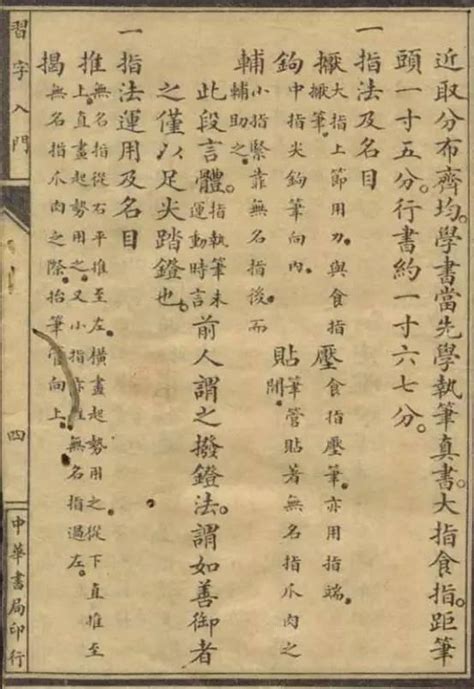 近取分布齊均。學書當先學執筆真書。大指食指距筆
頭一寸五分。行書約一寸六七分。
一指法及名目
擫 大指上節用力。與食指
擫筆。
壓 食指壓筆。亦用指端。
鉤 中指尖鉤筆向內。
貼 筆管貼著無名指爪肉之
間。
輔 小指緊靠無名指後。而
輔助之。
此段言體。
指執筆未
運動時言
前人謂之撥鐙法。謂如善御者
之僅以足尖踏鐙也。
一指法運用及名目
推 無名指從右平推至左。橫畫起勢用之。從下直推至
上。直畫起勢用之。又小指亦推無名指過左。
揭 無名指爪肉之際。抬筆管向上。
習字入門
四
中華書局印行